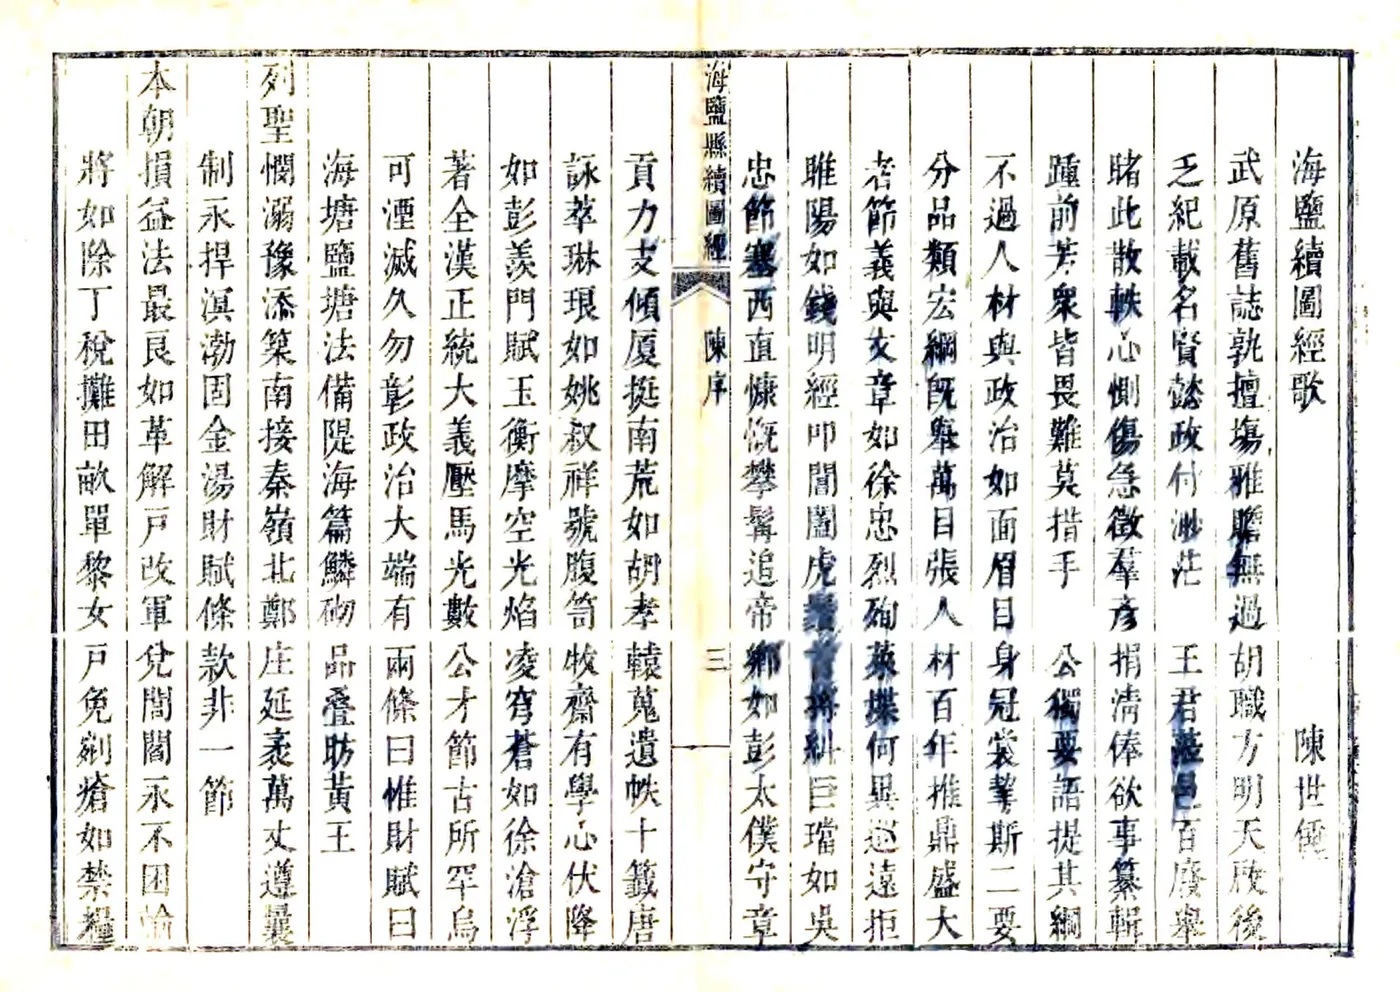 海鹽續圖經歌 陳世倕
武原舊誌孰擅塲雅贍無過胡職方明天啟後
乏紀載名賢懿政付渺茫 王君蒞邑百廢舉
睹此散軼心惻傷急徵羣彥捐淸俸欲事纂輯
踵前芳衆皆畏難莫措手 公獨要語提其綱
不過人材與政治如面眉目身冠裳挈斯二要
分品類宏綱旣舉萬目張人材百年推鼎盛大
者節義與文章如徐忠烈殉萊堞何異巡遠拒
睢陽如錢明經叩閶闔虎 糾巨璫如吳
忠節塞西直慷慨攀髯追帝鄉如彭太僕守章
貢力支傾厦挺南荒如胡孝轅蒐遺帙十籤唐
海鹽縣續圖經 陳序 三
詠萃琳琅如姚叔祥號腹笥牧齋有學心伏降
如彭羨門賦玉衡摩空光焰凌穹蒼如徐滄浮
著全漢正統大義壓馬光數公才節古所罕烏
可湮滅久勿彰政治大端有兩條曰惟財賦曰
海塘鹽塘法備隄海篇鱗砌品疊昉黃王
列聖憫溺豫添築南接秦嶺北鄭庄延袤萬丈遵曩
制永捍溟渤固金湯財賦條款非一節
本朝損益法最良如革解戸改軍兌閭閻永不困
將如除丁稅攤田畝單黎女戸免剜瘡如禁糧